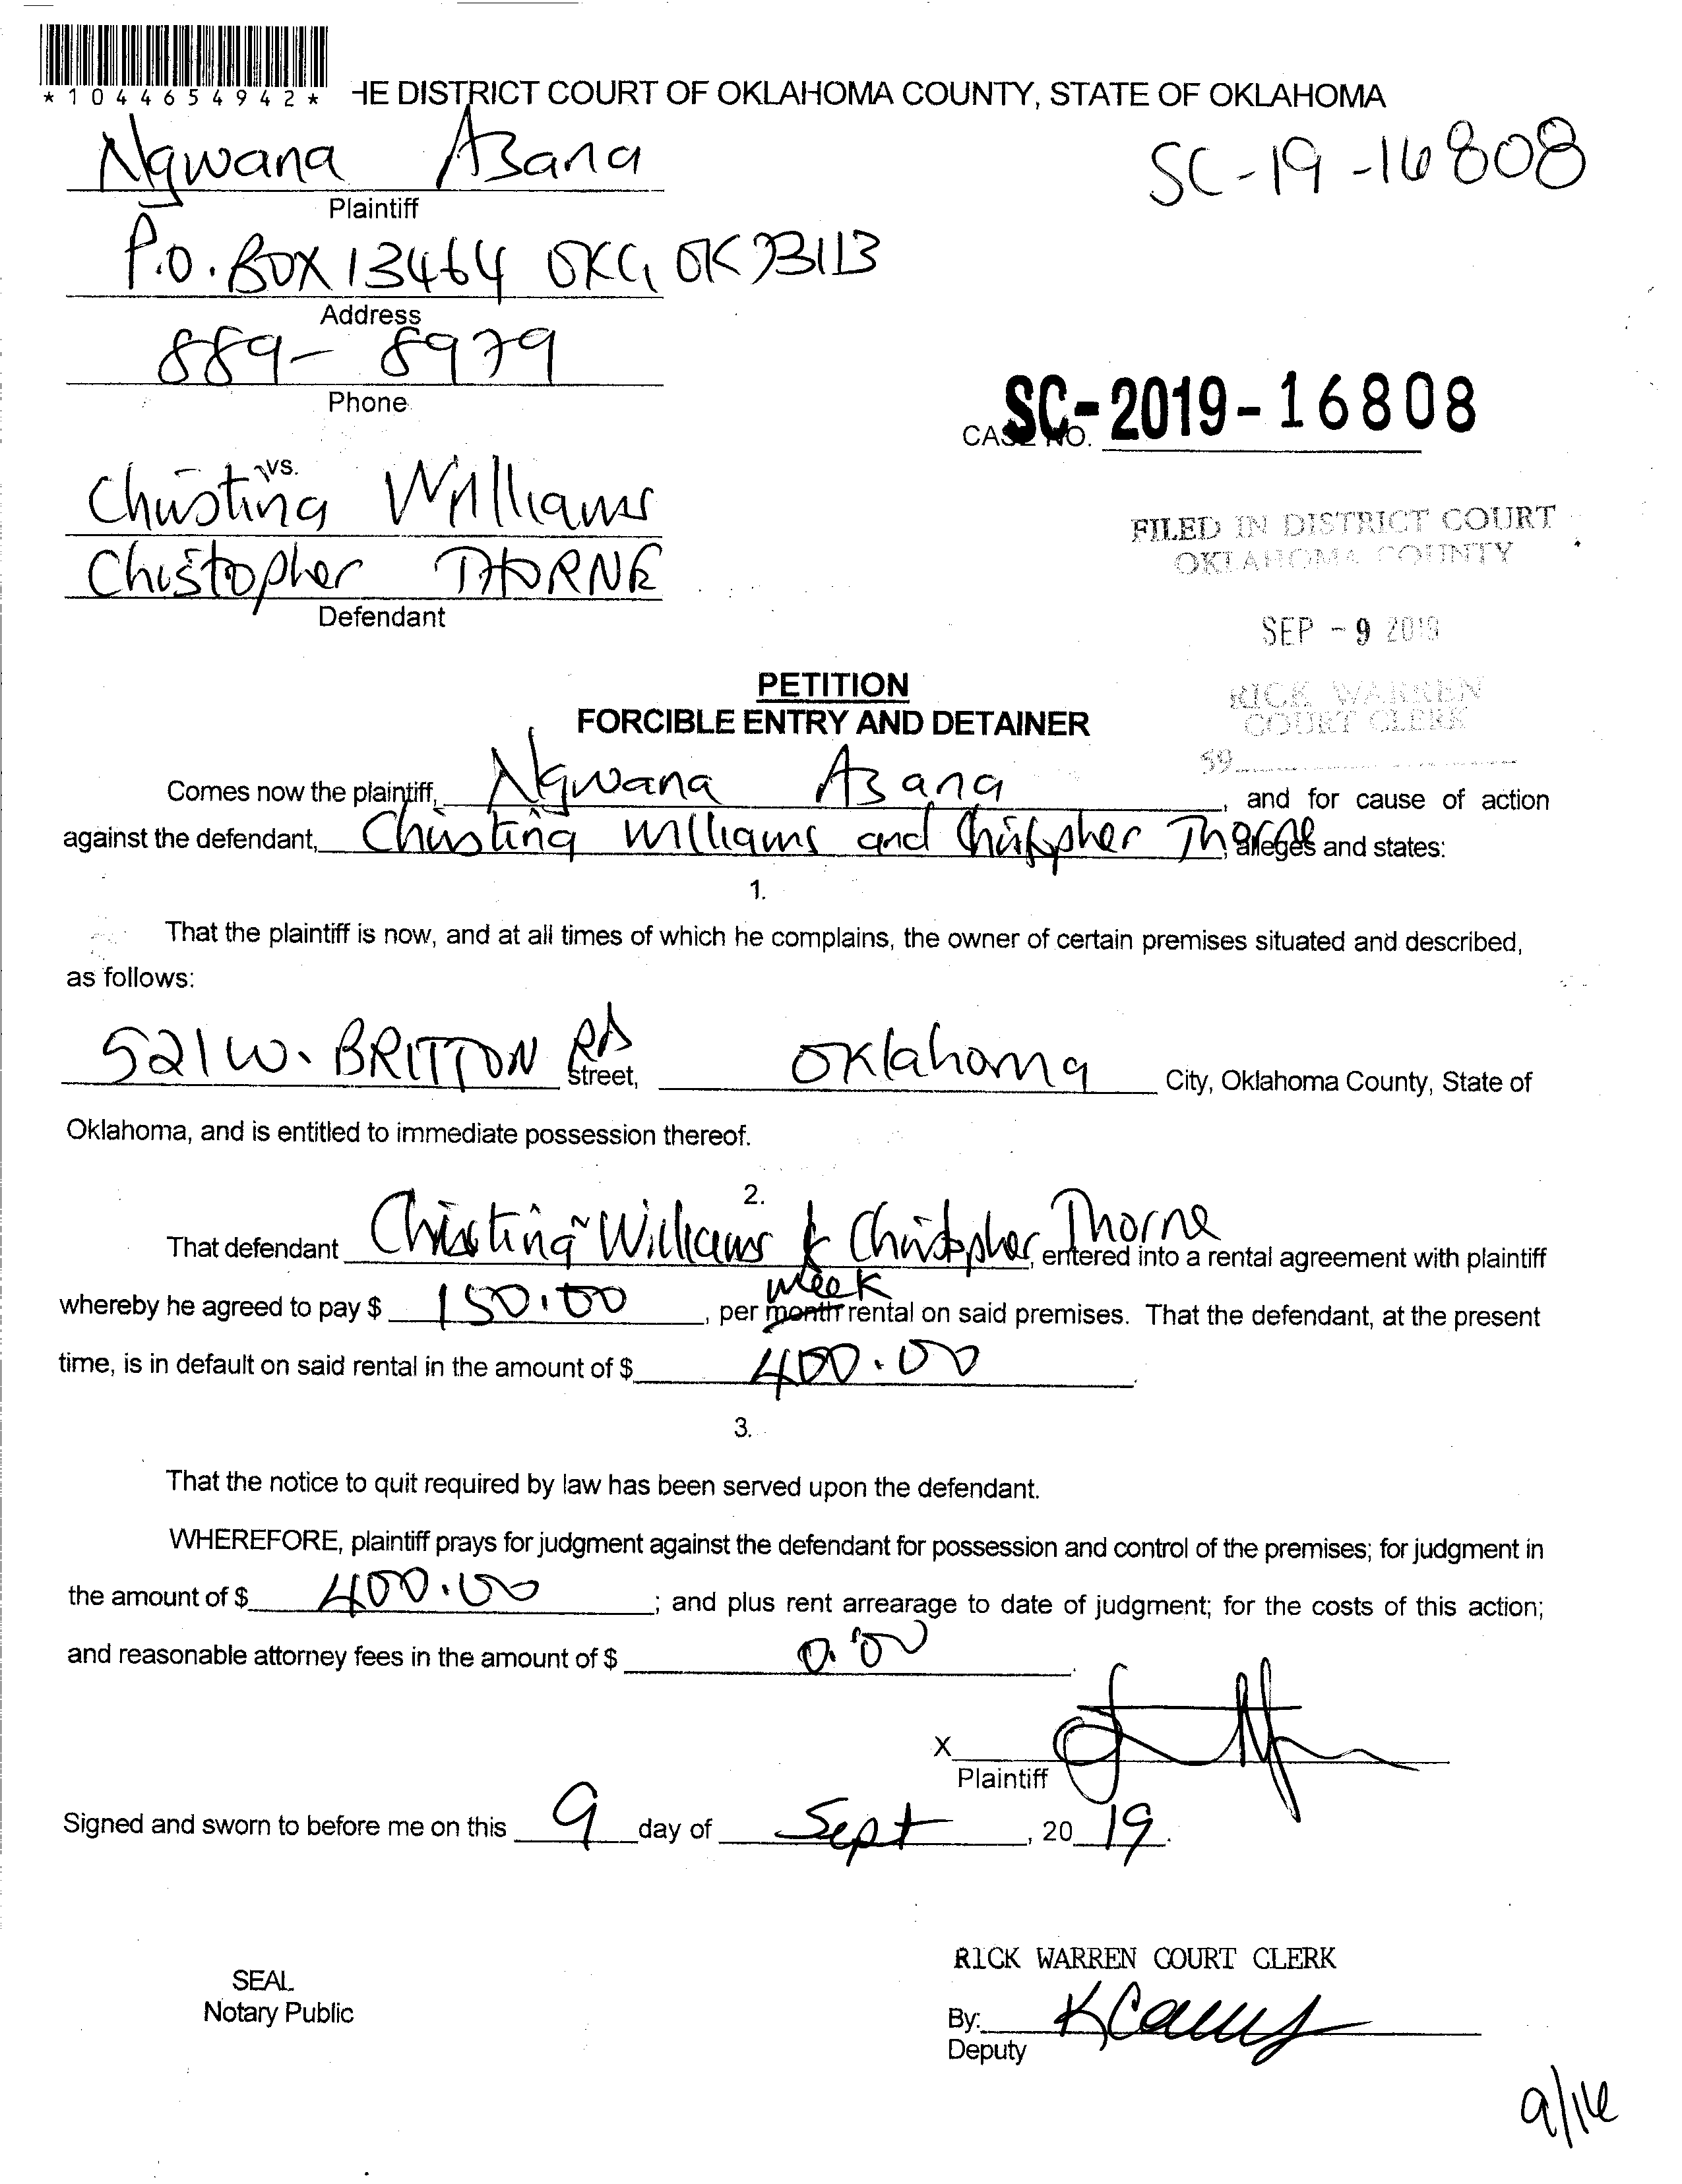 *1044654942*
HE DISTRICT COURT OF OKLAHOMA COUNTY, STATE OF OKLAHOMA
Ngwana Azana
SC-19-16808
Plaintiff
P.O. BOX 13464 OKC, OK 73113
Address
889-8979
Phone
SC-2019-16808
CASE NO.
vs.
Christina Williams
FILED IN DISTRICT COURT
OKLAHOMA COUNTY
Christopher THORNE
Defendant
SEP - 9 2019
PETITION
RICK WARREN
COURT CLERK
FORCIBLE ENTRY AND DETAINER
59
Comes now the plaintiff, Ngwana Azana, and for cause of action
against the defendant, Christina Williams and Christopher Thorne, alleges and states:
1.
That the plaintiff is now, and at all times of which he complains, the owner of certain premises situated and described,
as follows:
521 W. BRITTON Rd street, Oklahoma City, Oklahoma County, State of
Oklahoma, and is entitled to immediate possession thereof.
2.
That defendant Christina Williams & Christopher Thorne, entered into a rental agreement with plaintiff
week
whereby he agreed to pay $ 150.00, per month rental on said premises. That the defendant, at the present
time, is in default on said rental in the amount of $ 400.00.
3.
That the notice to quit required by law has been served upon the defendant.
WHEREFORE, plaintiff prays for judgment against the defendant for possession and control of the premises; for judgment in
the amount of $ 400.00; and plus rent arrearage to date of judgment; for the costs of this action;
and reasonable attorney fees in the amount of $ 0.00.
X
Plaintiff
Signed and sworn to before me on this 9 day of Sept, 2019.
RICK WARREN COURT CLERK
SEAL
Notary Public
By:
Deputy
9/16